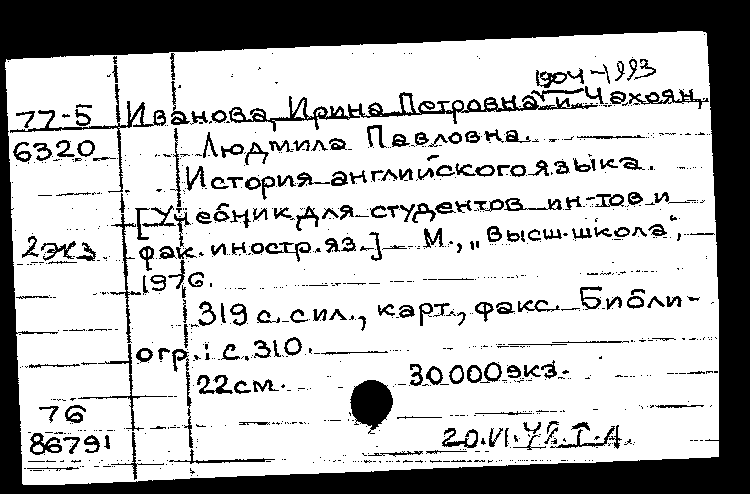 1904-1993
77-5 Иванова, Ирина Петровна и Чахоян,
6320 Людмила Павловна.
История английского языка.
[Учебник для студентов ин-тов и
2 экз фак. иностр. яз.] М., „Высш. школа",
1976.
319 с. с ил., карт., факс. Библи-
огр.: с. 310.
22 см. 30 000 экз.
76
86791 20.VI.78. Т.А.